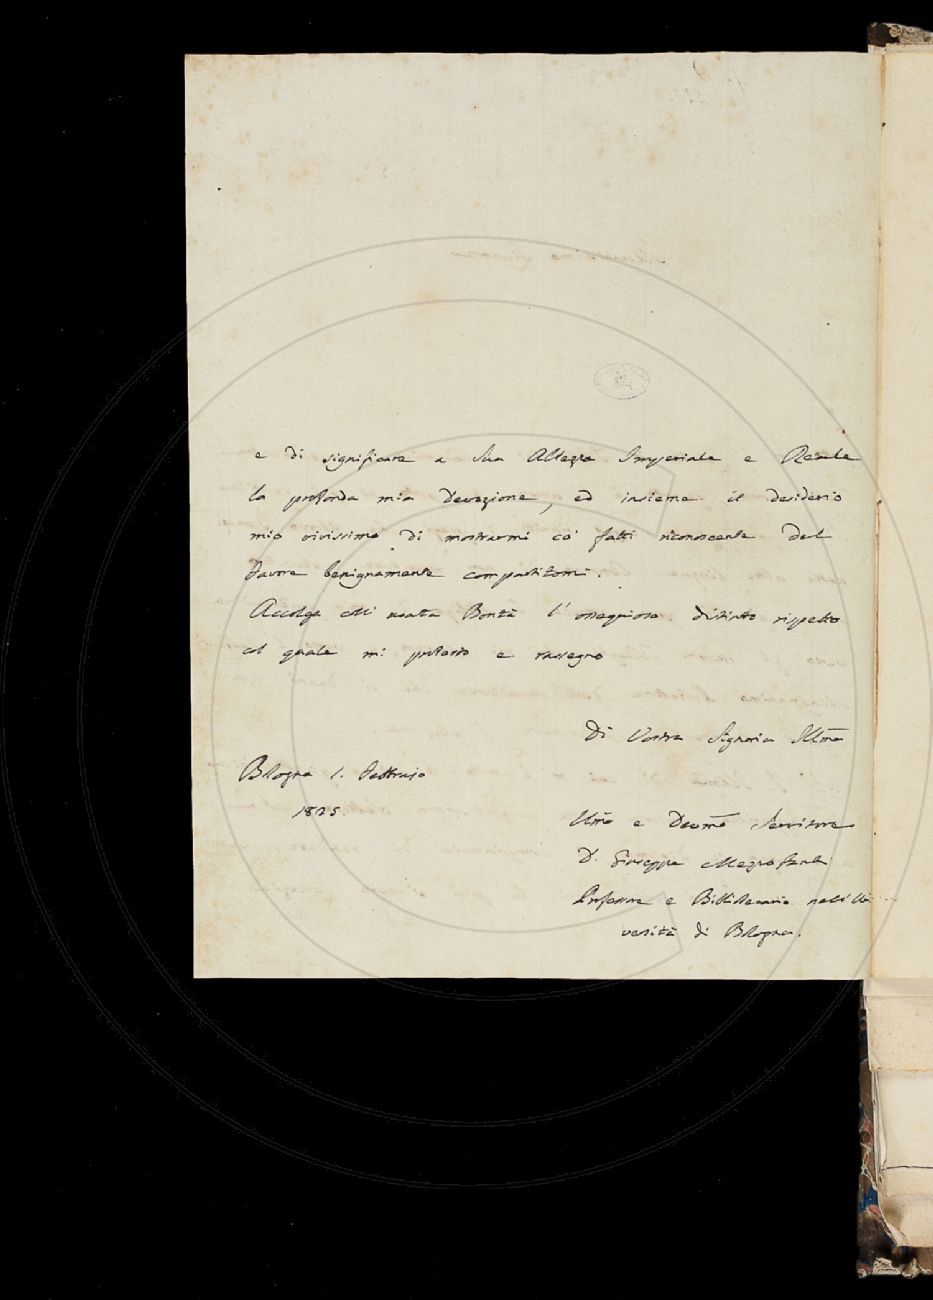 e di significare a Sua Altezza Imperiale e Reale
la profonda mia Devozione, ed insieme il desiderio
mio vivissimo di mostrarmi co' fatti riconoscente del
favore benignamente compartitomi.
Accolga colla usata Bontà l' ossequioso distinto rispetto
col quale mi protesto e rassegno
Di Vostra Signoria Illma
Bologna 1. Febbrajo
1825.
Umo e Devmo Servitore
D. Giuseppe Mezzofanti
Professore e Bibliotecario nell'Uni
versità di Bologna.